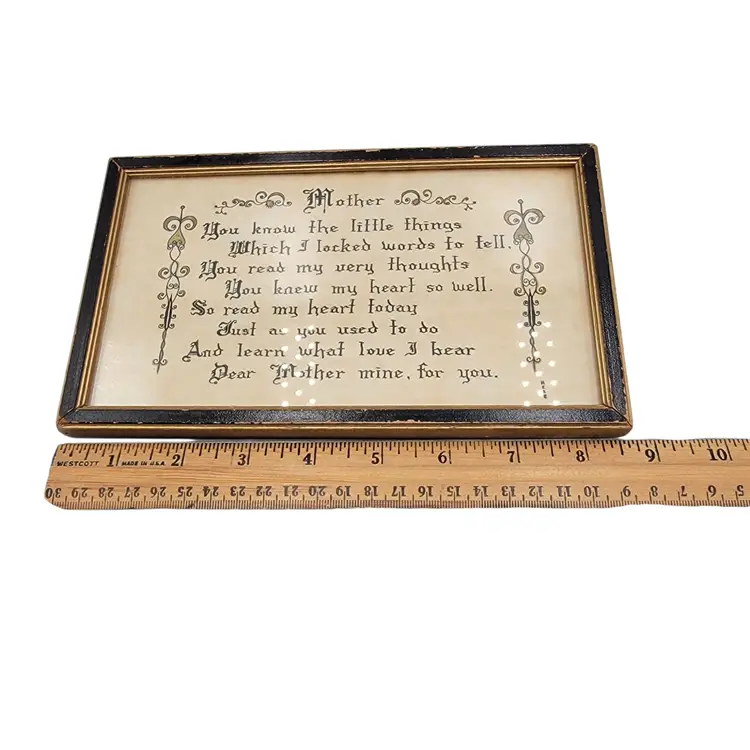 Mother
You know the little things
Which I locked words to tell.
You read my very thoughts
You knew my heart so well.
So read my heart today
Just as you used to do
And learn what love I bear
Dear Mother mine, for you.
WESTCOTT 1 MADE IN U.S.A. 2 3 4 5 6 7 8 9 10
30 29 28 27 26 25 24 23 22 21 20 19 18 17 16 15 14 13 12 11 10 9 8 7 6 5